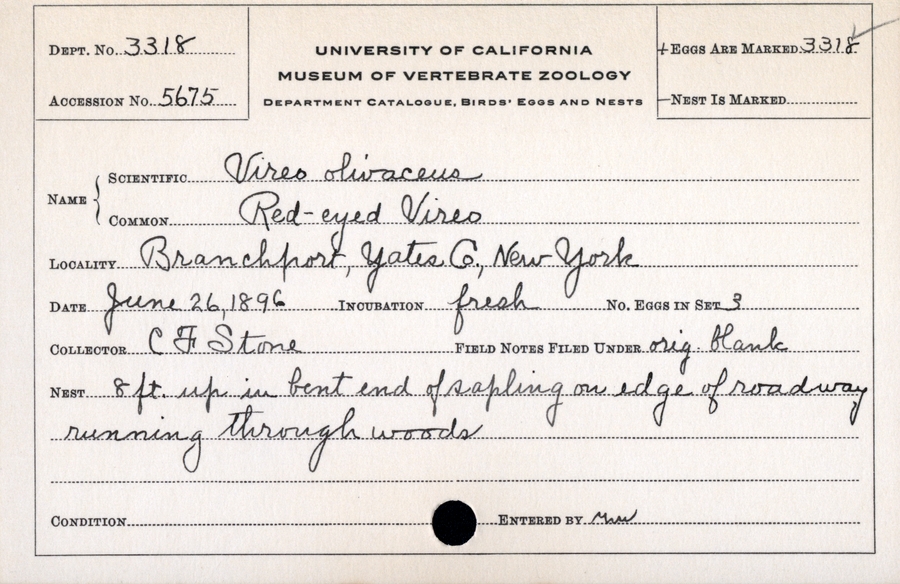 DEPT. No. 3318
ACCESSION No. 5675
UNIVERSITY OF CALIFORNIA
MUSEUM OF VERTEBRATE ZOOLOGY
DEPARTMENT CATALOGUE, BIRDS' EGGS AND NESTS
+EGGS ARE MARKED 3318
—NEST IS MARKED
NAME
SCIENTIFIC Vireo olivaceus
COMMON Red-eyed Vireo
LOCALITY Branchport, Yates Co., New York
DATE June 26, 1896 INCUBATION fresh No. EGGS IN SET 3
COLLECTOR C F Stone FIELD NOTES FILED UNDER orig. blank
NEST 8 ft. up in bent end of sapling on edge of roadway
running through woods
CONDITION ENTERED BY